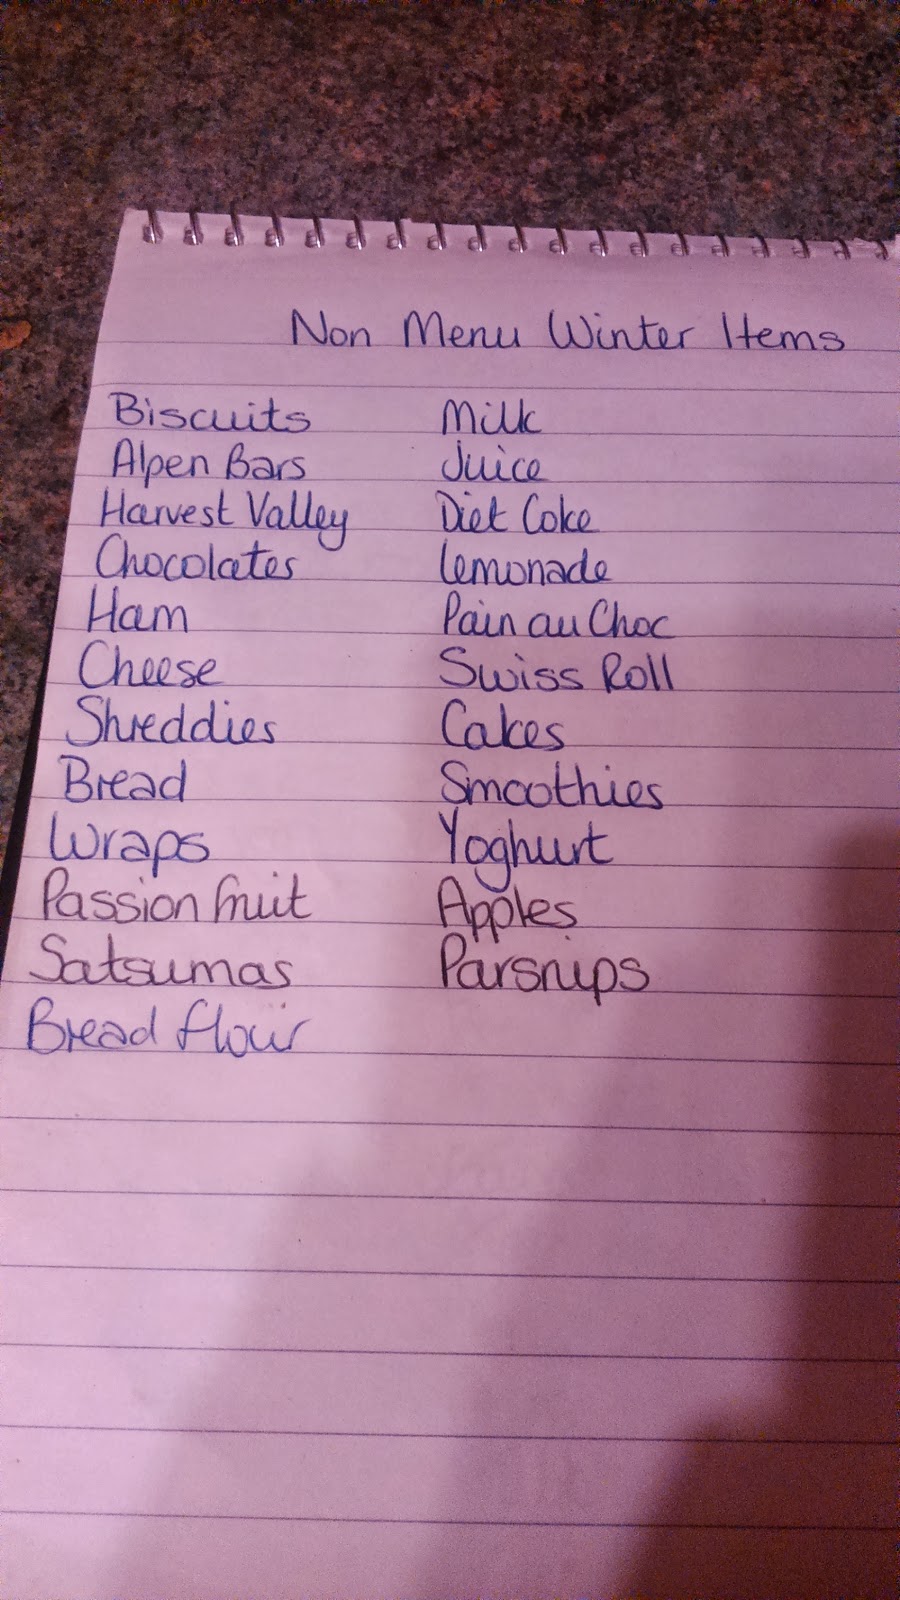 Non Menu Winter Items
Biscuits
Alpen Bars
Harvest Valley
Chocolates
Ham
Cheese
Shreddies
Bread
Wraps
Passion fruit
Satsumas
Bread flour
Milk
Juice
Diet Coke
Lemonade
Pain au Choc
Swiss Roll
Cakes
Smoothies
Yoghurt
Apples
Parsnips